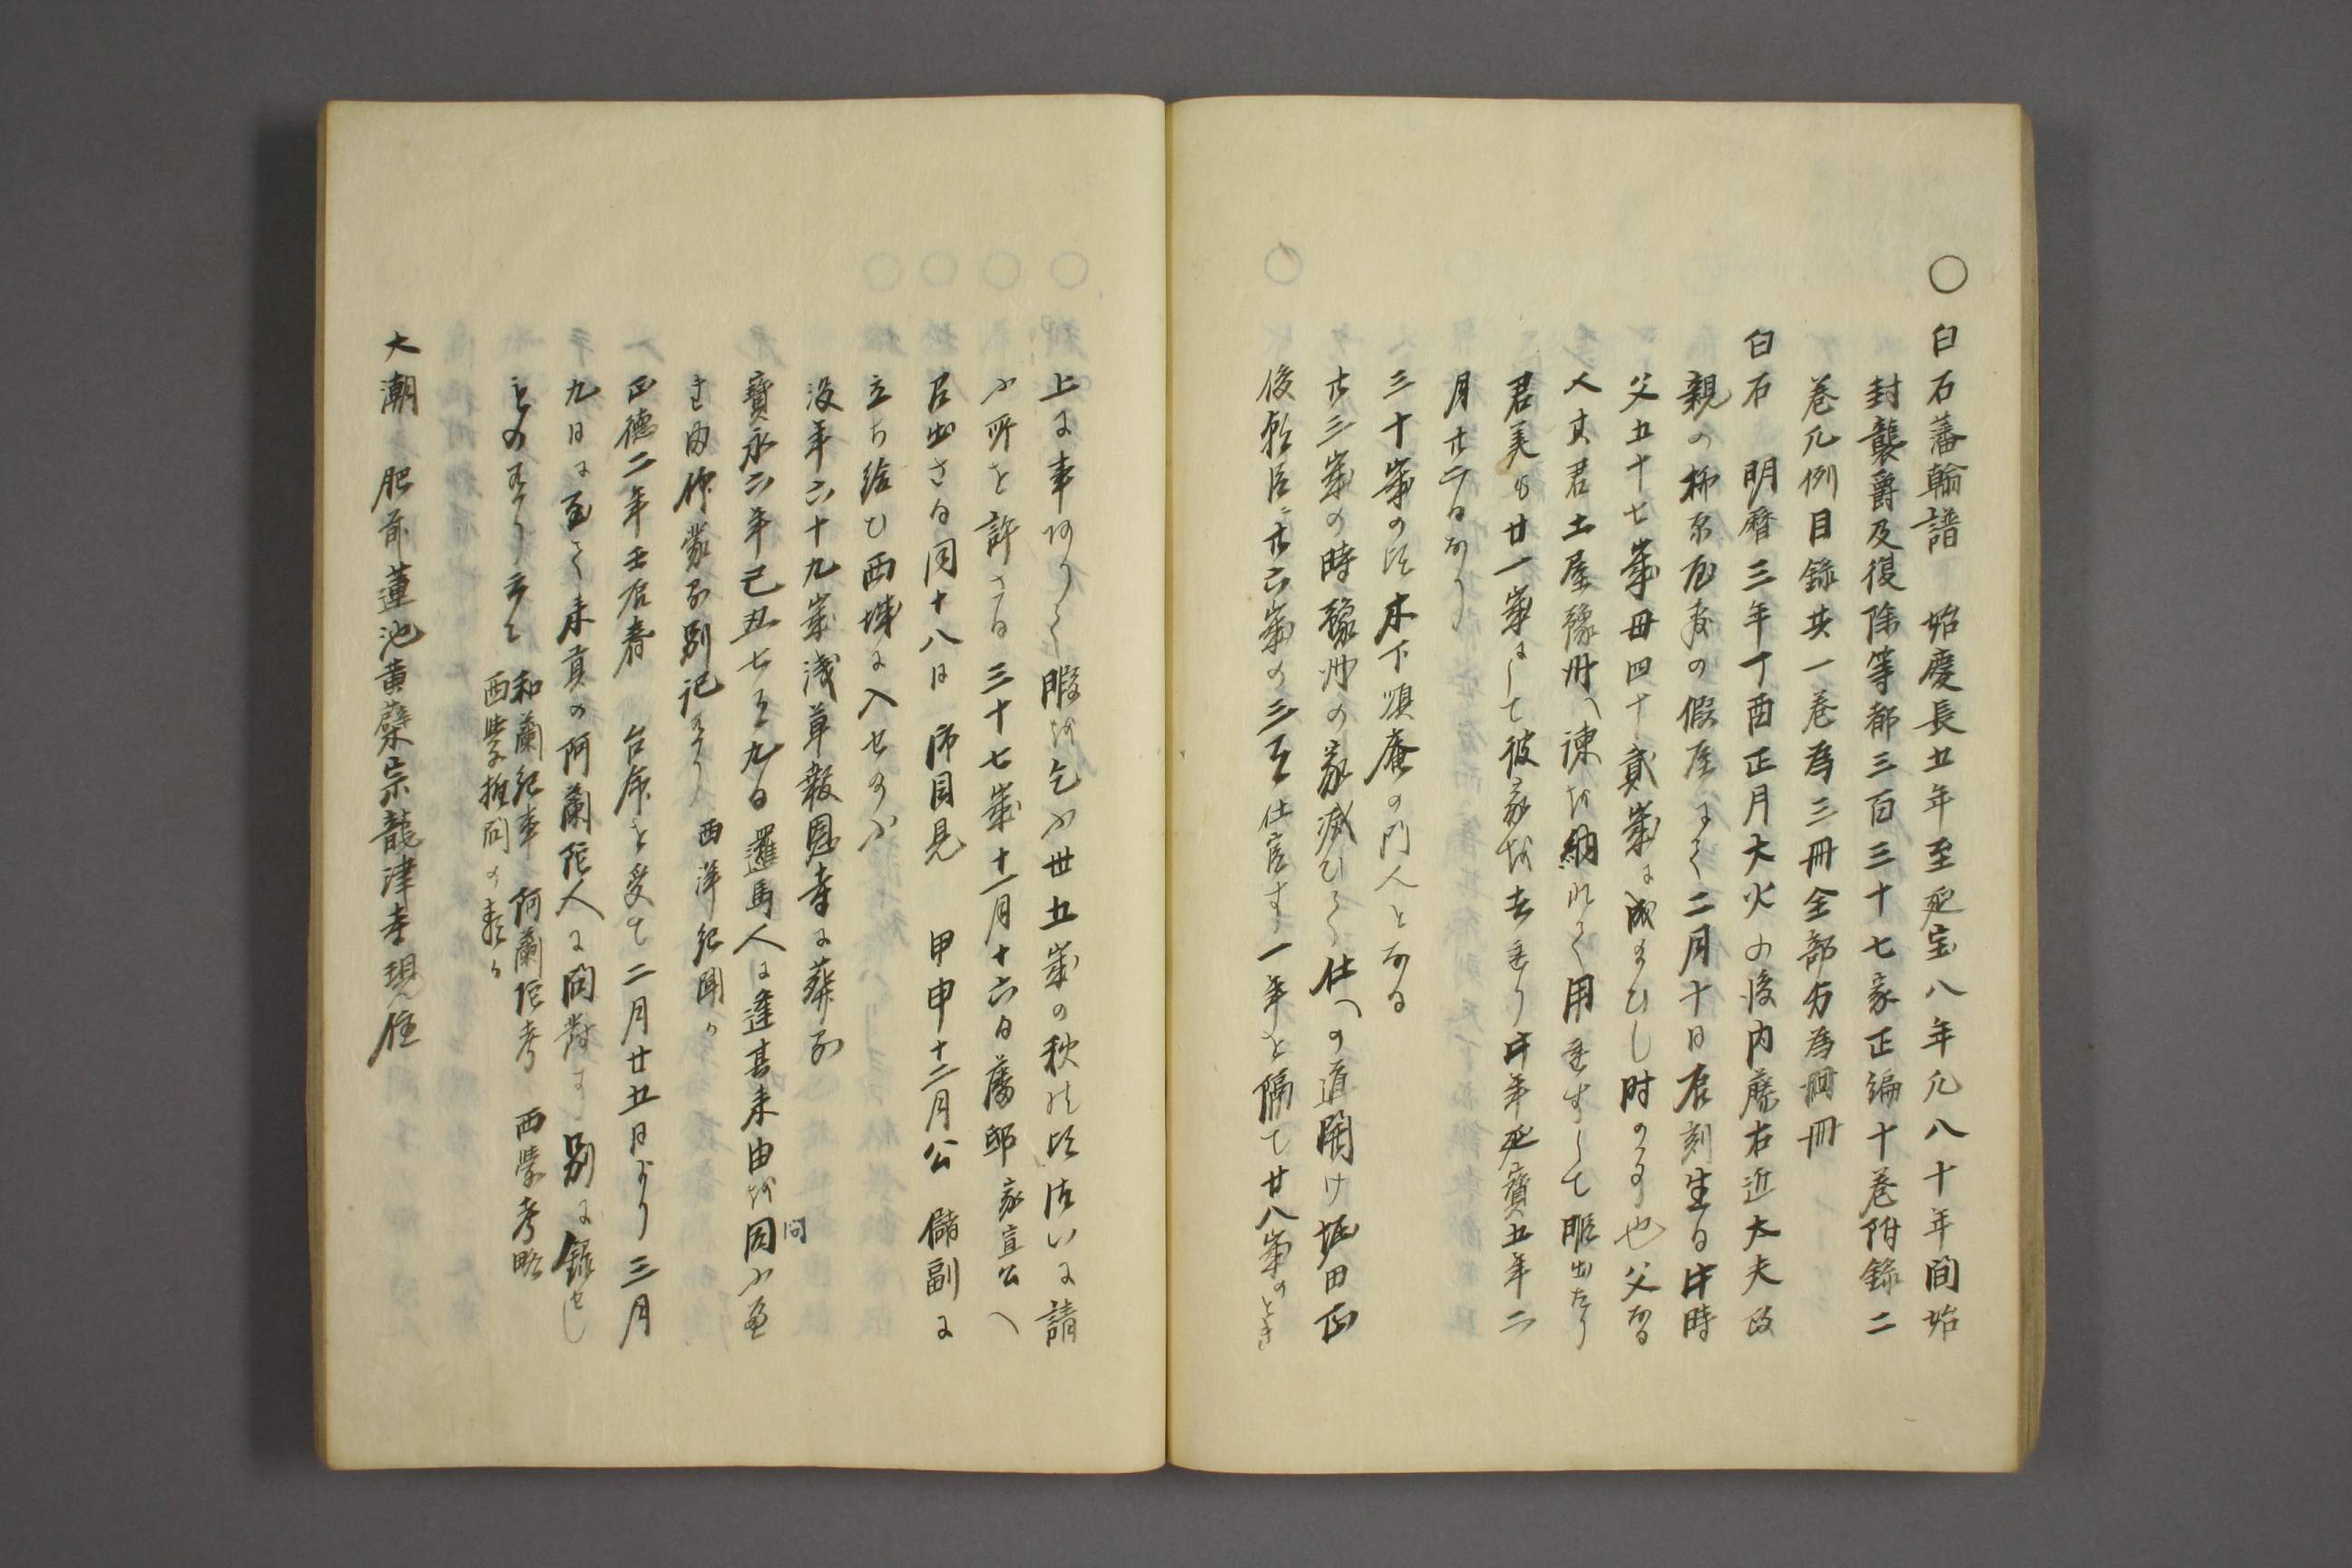 ○ 白石藩翰譜 始慶長五年至延宝八年凡八十年間始
封襲爵及復除等都三百三十七家正編十巻附録二
巻凡例目録共一巻為三冊全部分為冊
白石 明暦三年丁酉正月大火の後内藤右近太夫政
親の柳原屋敷の假屋にて二月十日辰刻生る此時
父五十七歳母四十貳歳に成まひし時の事也父なる
人其君土屋豫州へ諌を納れて用ゐすして脱出たり
君美も廿一歳にして彼家を去れり此年延寶五年二
月廿二日なり
三十歳の比木下順庵の門人となる
廿三歳の時豫州の家滅ひて仕への道開け堀田正
俊朝臣に廿六歳の三至仕官す一年を隔て廿八歳のとき
上に事ありて暇を乞ふ丗五歳の秋の比はいに請
ふ所を許さる三十七歳十二月十六日藩邸家宣公へ
召出さる同十八日 御目見 甲申十二月公 儲副に
立ち給ひ西城に入せのふ
没年六十九歳浅草報恩寺に葬る
寶永六年己丑七至九日邏馬人に逢其来由を問ふ
き由作蒙る別記あり 西洋紀聞か
正徳二年壬辰春 台命を受て二月廿五日より三月
九日に至て来貢の阿蘭陀人に問対す別に録せし
ものありと云 和蘭紀事 阿蘭陀考 西学考略
西学推問の類か
大潮 肥前蓮池黄檗宗龍津寺現住